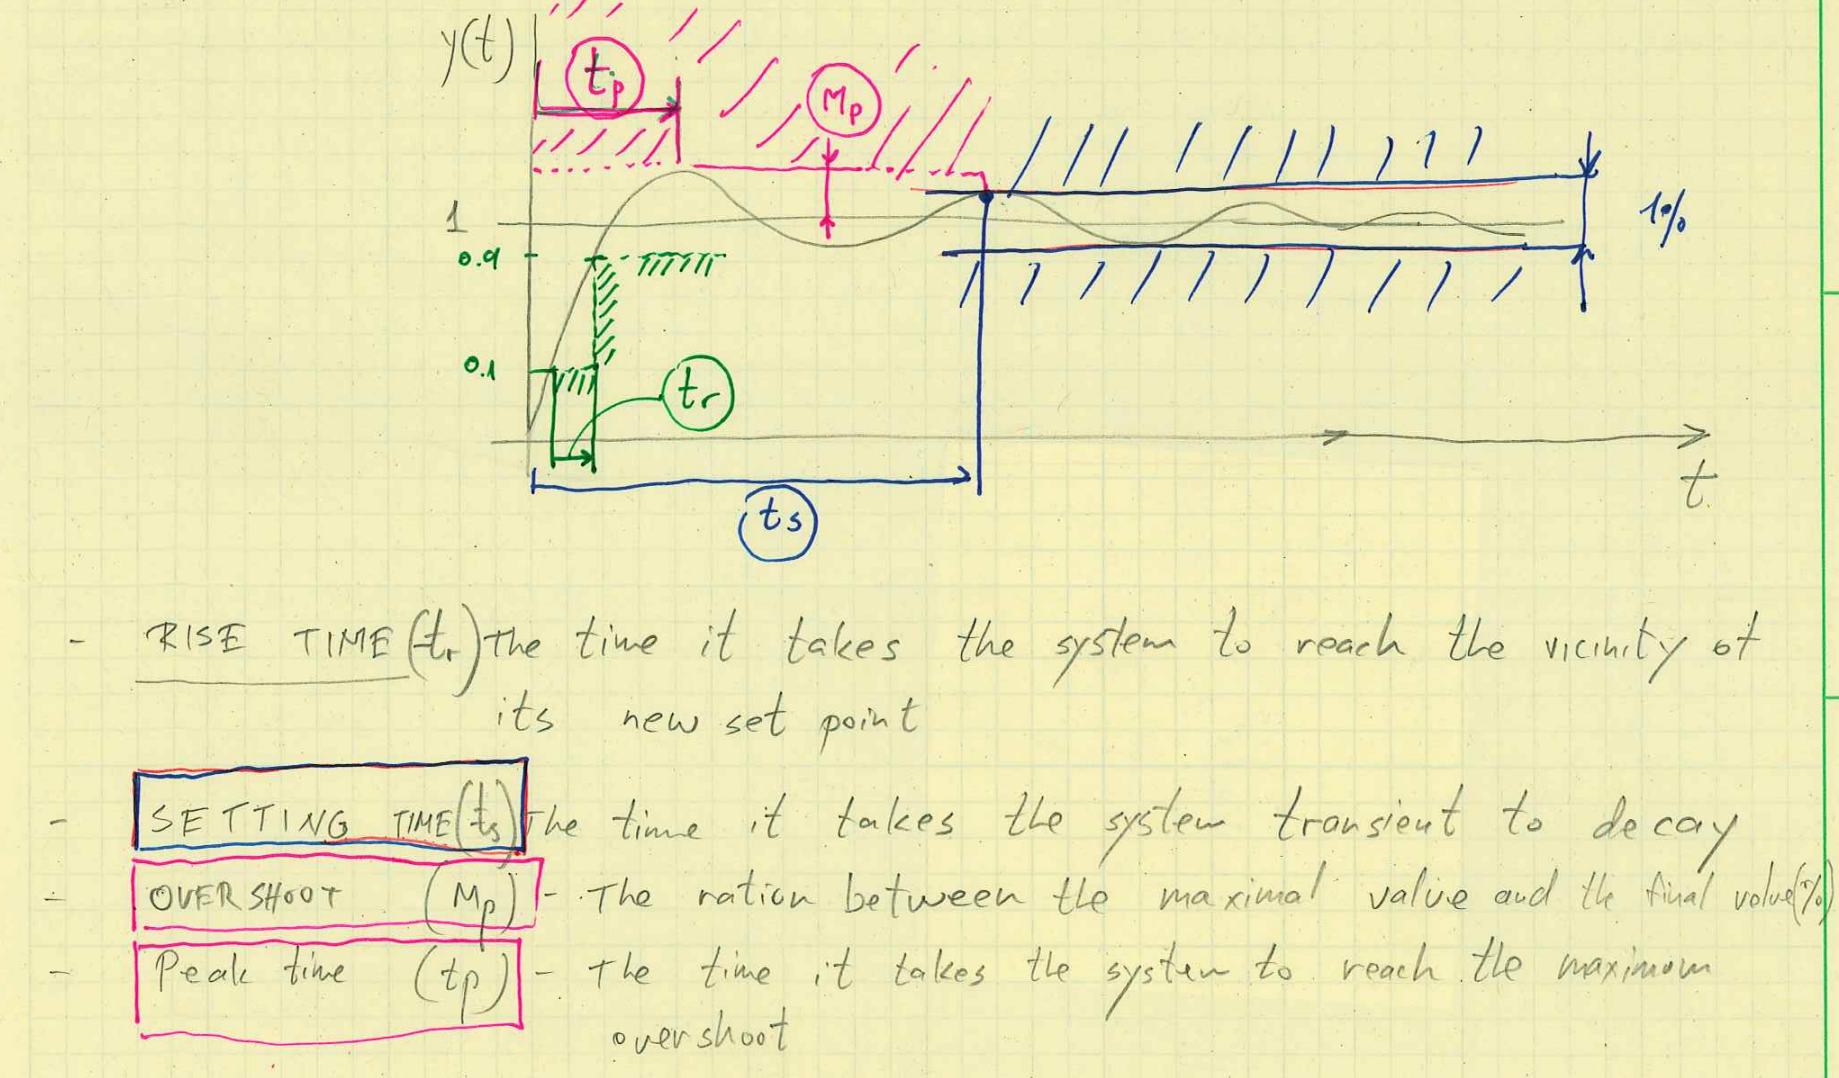 y(t)
tp
Mp
1
1%
0.9
0.1
tr
ts
t
- RISE TIME (tr) The time it takes the system to reach the vicinity of
its new set point
- SETTING TIME (ts) The time it takes the system transient to decay
- OVERSHOOT (Mp) - The ration between the maximal value and the final value (%)
- Peak time (tp) - The time it takes the system to reach the maximum
overshoot